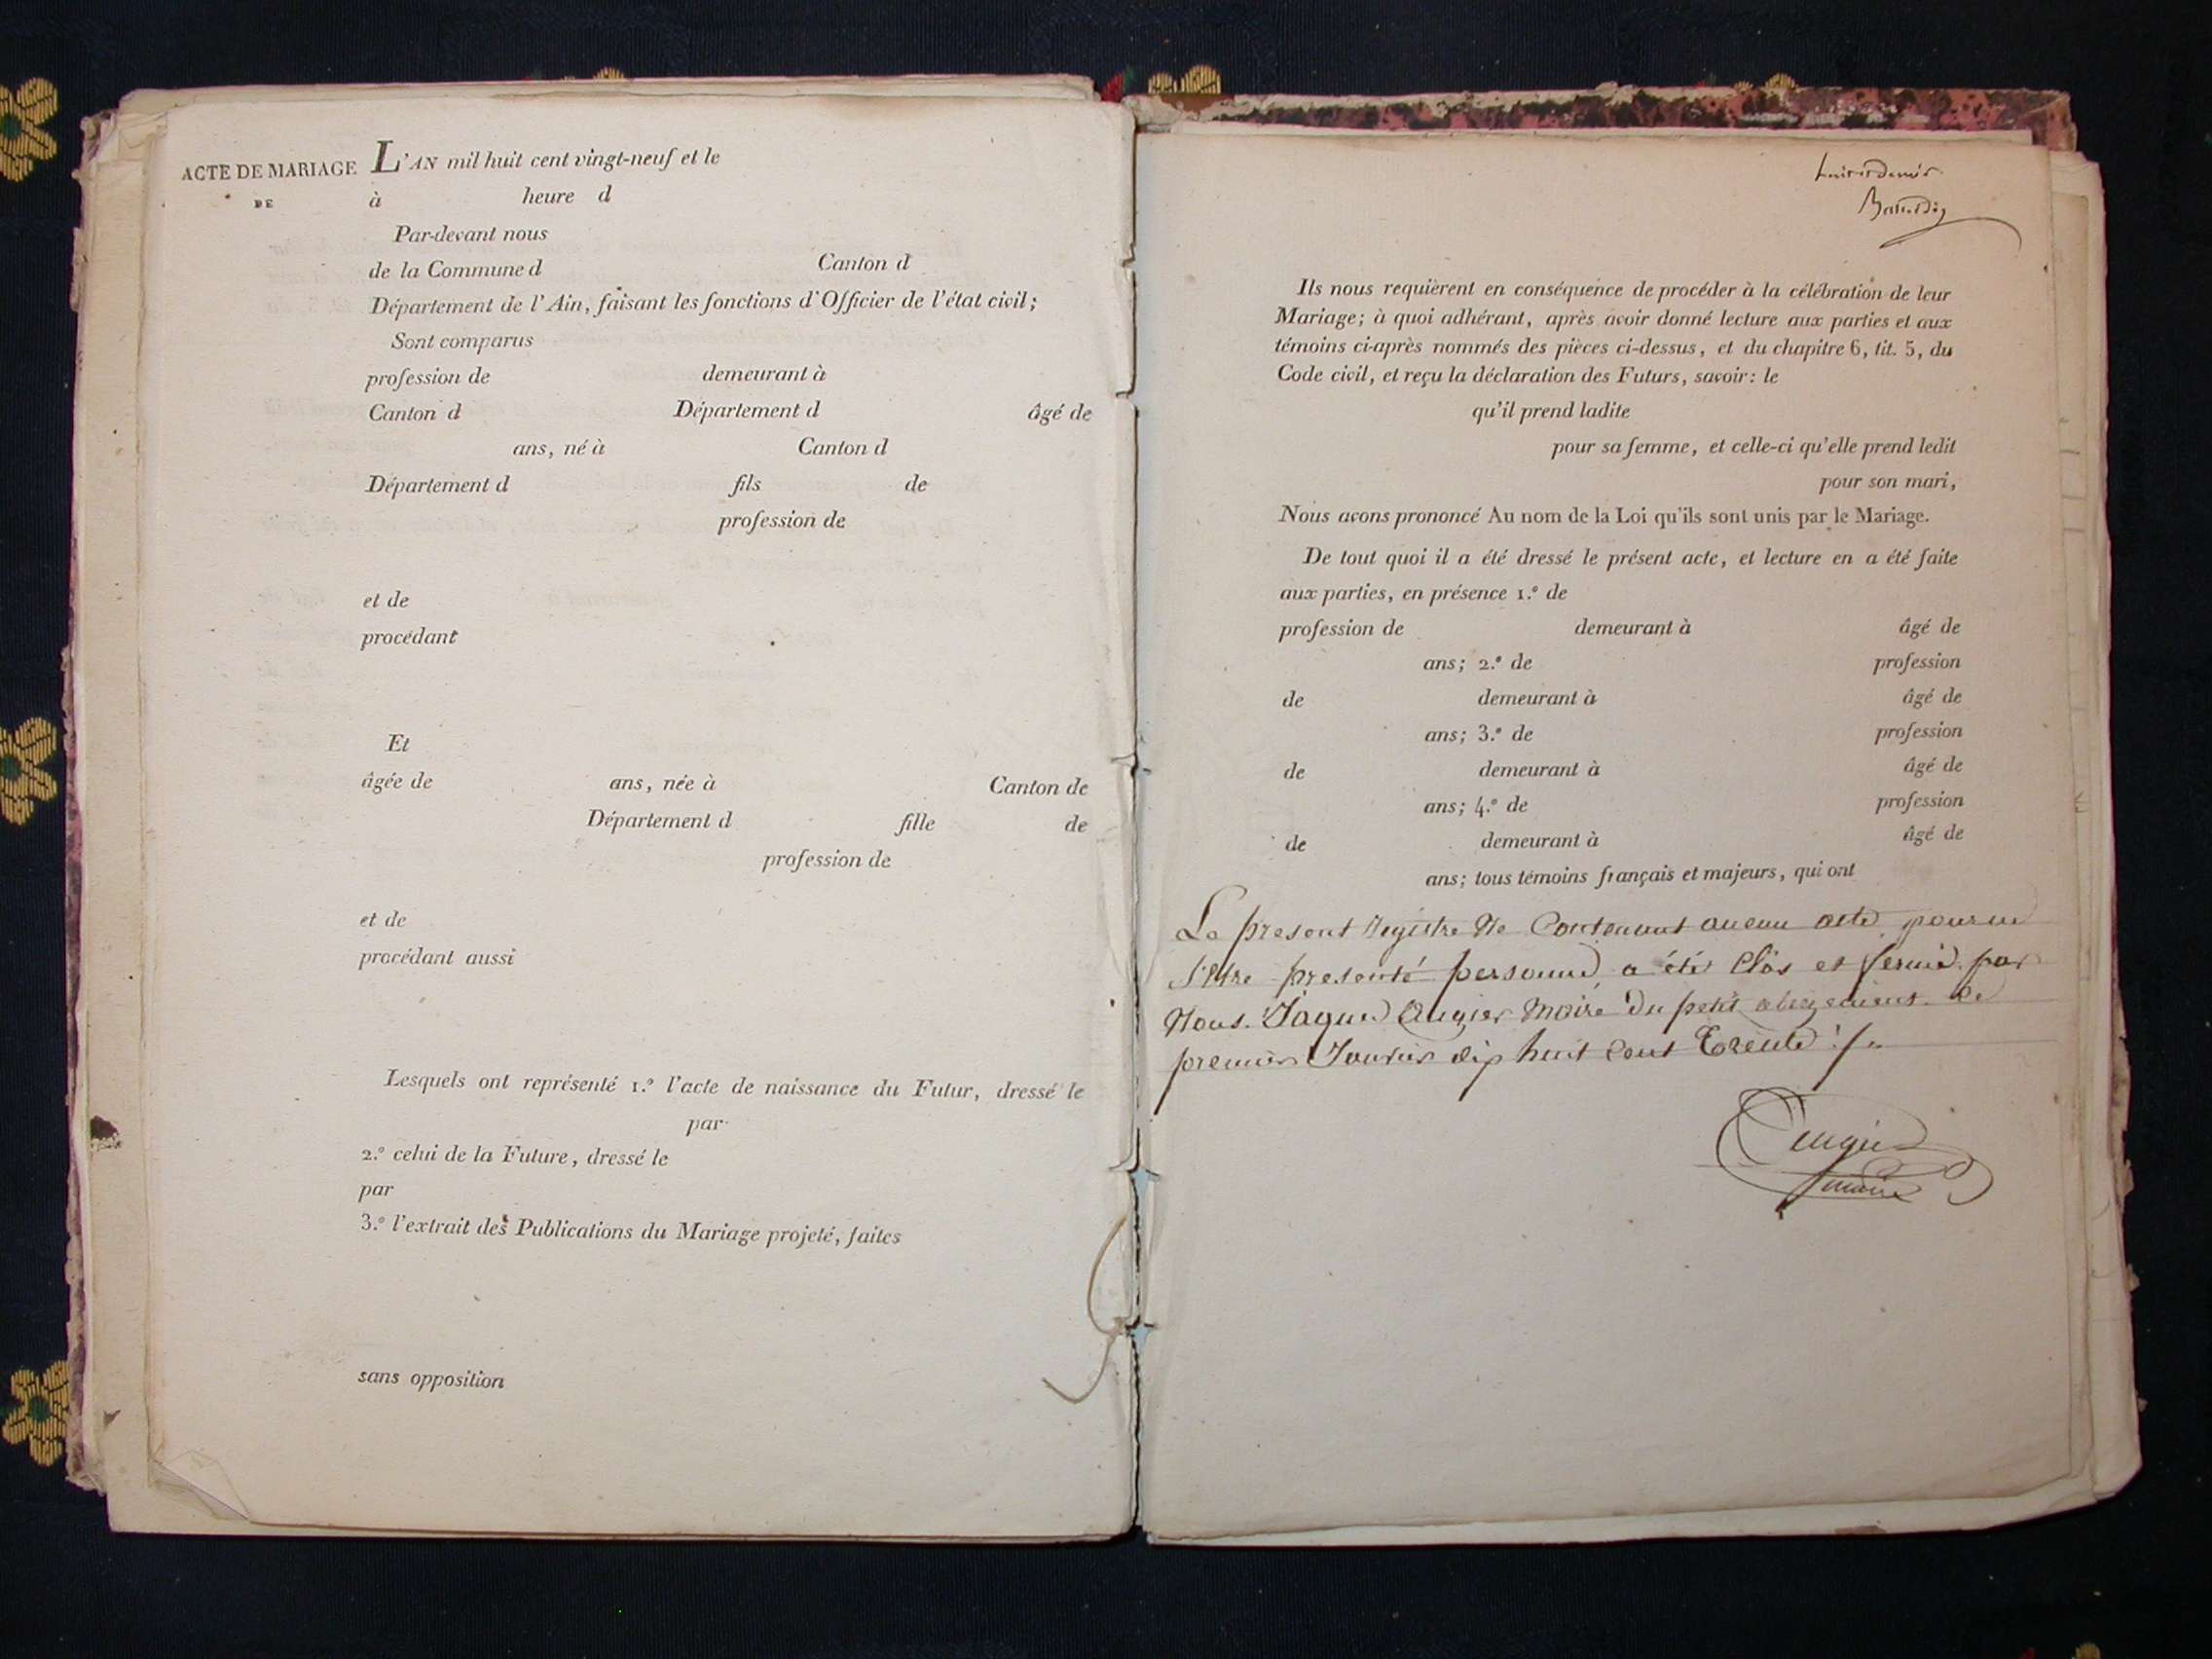 ACTE DE MARIAGE L'AN mil huit cent vingt-neuf et le
DE à heure d
Par-devant nous
de la Commune d Canton d
Département de l'Ain, faisant les fonctions d'Officier de l'état civil;
Sont comparus
profession de demeurant à
Canton d Département d âgé de
ans, né à Canton d
Département d fils de
profession de
et de
procédant
Et
âgée de ans, née à Canton de
Département d fille de
profession de
et de
procédant aussi
Lesquels ont représenté 1.º l'acte de naissance du Futur, dressé le
par
2.º celui de la Future, dressé le
par
3.º l'extrait des Publications du Mariage projeté, faites
sans opposition
Ils nous requièrent en conséquence de procéder à la célébration de leur
Mariage; à quoi adhérant, après avoir donné lecture aux parties et aux
témoins ci-après nommés des pièces ci-dessus, et du chapitre 6, tit. 5, du
Code civil, et reçu la déclaration des Futurs, savoir: le
qu'il prend ladite
pour sa femme, et celle-ci qu'elle prend ledit
pour son mari,
Nous avons prononcé Au nom de la Loi qu'ils sont unis par le Mariage.
De tout quoi il a été dressé le présent acte, et lecture en a été faite
aux parties, en présence 1.º de
profession de demeurant à âgé de
ans; 2.º de profession
de demeurant à âgé de
ans; 3.º de profession
de demeurant à âgé de
ans; 4.º de profession
de demeurant à âgé de
ans; tous témoins français et majeurs, qui ont
Le present Registre Ne Contenant aucun acte, pour ne
s'Etre presenté personne, a été Clos et fermé par
Nous Jaques Augier Maire du petit abergement le
premier Janvier dix huit Cent Trente
Augier
maire